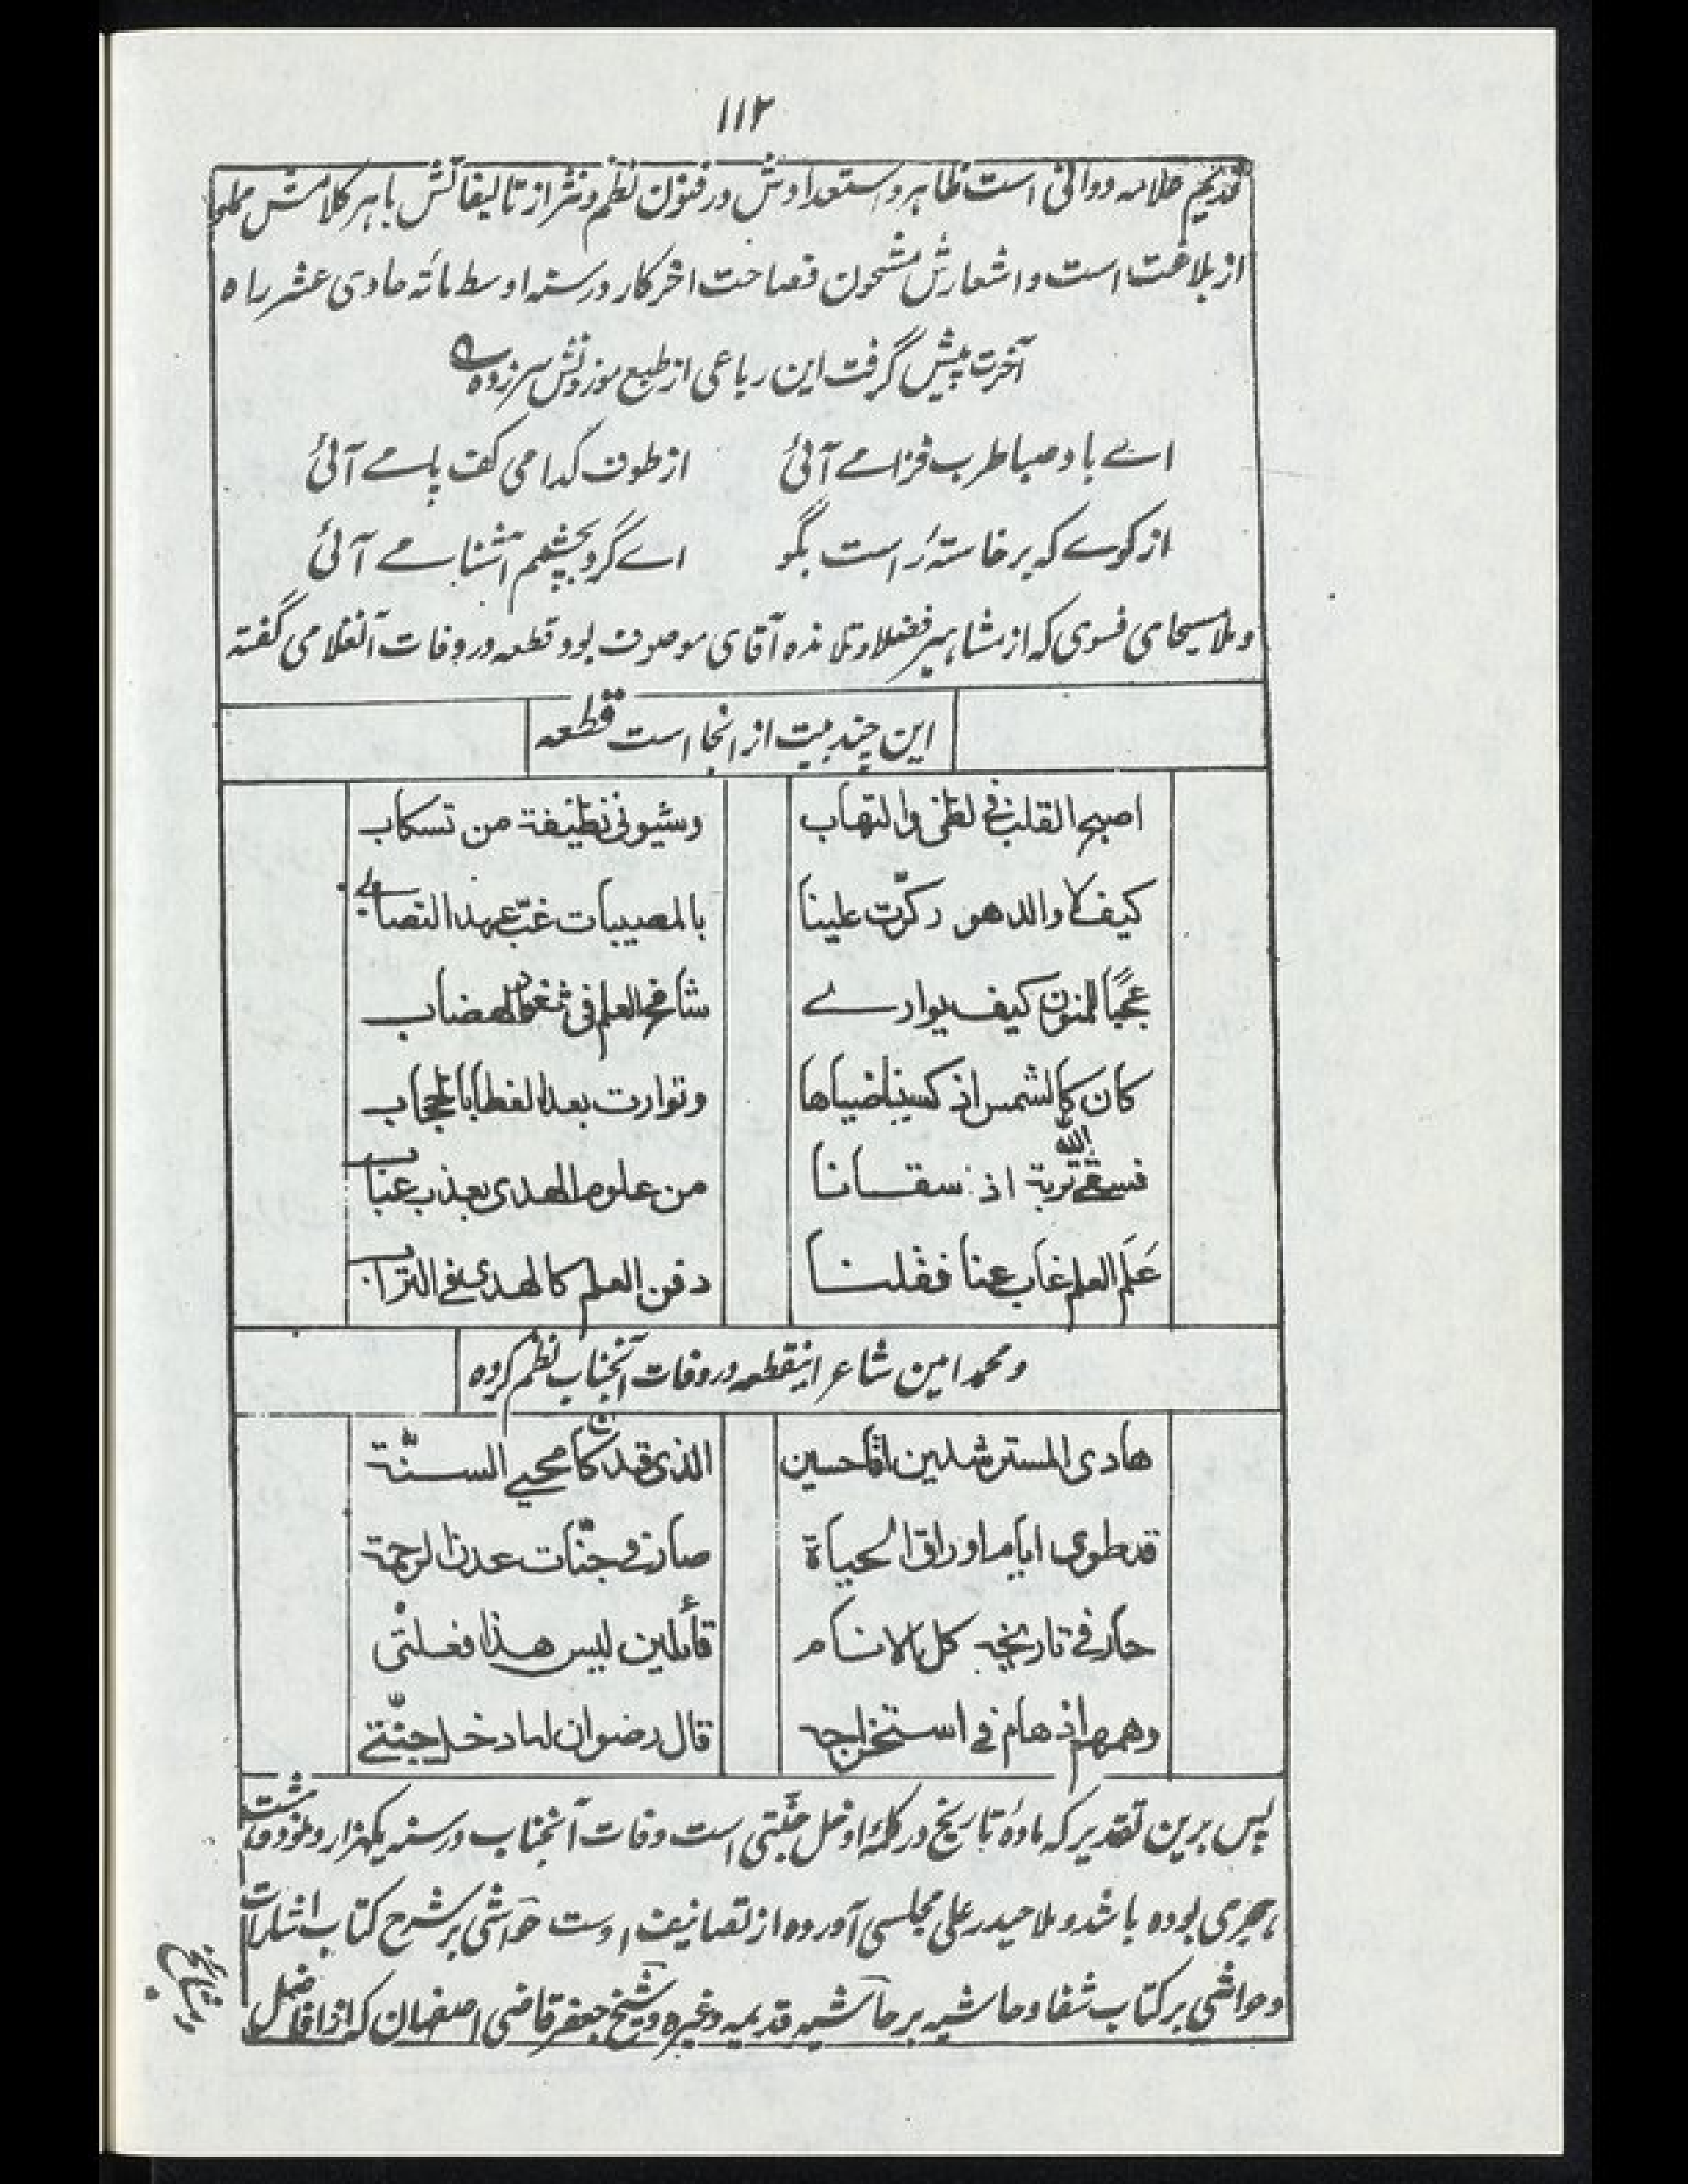 ۱۱۲
قدیم علامه دوانی است ظاهر و استعدادش در فنون نظم و نثر از تالیفاتش باهر کلامش مملو
از بلاغت است و اشعارش مشحون فصاحت اخر کار در سنه اوسط مائه حادی عشر راه
آخرت پیش گرفت این رباعی از طبع موزونش سرزده
اے باد صبا طرب فزا مے آئی از طوف کدامی کف پا مے آئی
از کوے که برخاستهٔ راست بگو اے گرد بچشمم آشنا مے آئی
و ملا مسیحای فسوی که از مشاهیر فضلا و تلامذه آقای موصوف بود قطعه در وفات آنعلامی گفته
این چند بیت از انجا است قطعه
اصبح القلب فی لظی والتهاب وشیونی نظیفة من تسکاب
کیف لا والدهور کرّت علینا بالمصیبات غبّ عهد التصابی
عجبًا للمنون کیف یوارے شامخ العلم فی الهضاب
کان کالشمس اذ کسینا ضیاها وتوارت بعد الغطا بالحجاب
فسقی الله تربة اذ سقانا من علوم الهدی بعذب عباب
عَلَم العلم غاب عنا فقلنا دفن العلم کالهدی فی التراب
و محمد امین شاعر اینقطعه در وفات آنجناب نظم کرده
هادی المسترشدین اقا حسین الذی قد کان محیی السنّة
قد طوی ایام اوراق الحیاة صار فی جنّات عدن الرحمة
حار فی تاریخه کل الانام قائلین لیس هذا فعلتی
وهمهم اذ هام فی استخراجه قال رضوان لها ادخل جنّتی
پس برین تقدیر که مادهٔ تاریخ در کلمهٔ ادخل جنّتی است وفات آنجناب در سنه یکهزار و نود و هشت
هجری بوده باشد و ملا حیدر علی مجلسی آورده از تصانیف اوست حواشی بر شرح کتاب اشارات
و حواشی بر کتاب شفا و حاشیه بر حاشیه قدیمه و غیره و شیخ جعفر قاضی اصفهان که از افاضل